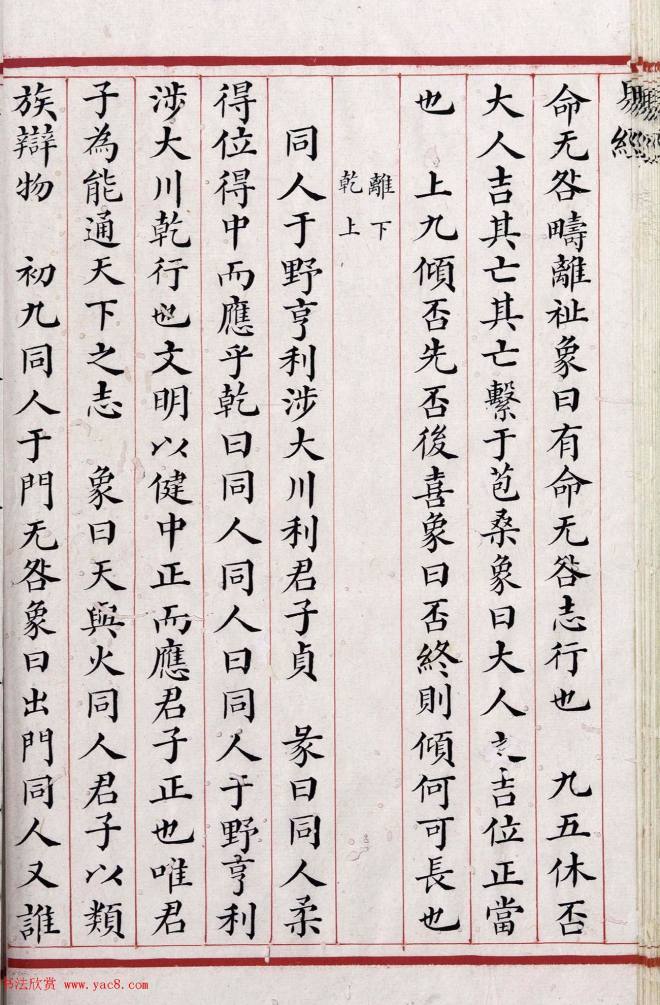 易經
命无咎疇離祉象曰有命无咎志行也　九五休否
大人吉其亡其亡繫于苞桑象曰大人之吉位正當
也　上九傾否先否後喜象曰否終則傾何可長也
離下
乾上
同人于野亨利涉大川利君子貞　彖曰同人柔
得位得中而應乎乾曰同人同人曰同人于野亨利
涉大川乾行也文明以健中正而應君子正也唯君
子為能通天下之志　象曰天與火同人君子以類
族辯物　初九同人于門无咎象曰出門同人又誰
书法欣赏 www.yac8.com